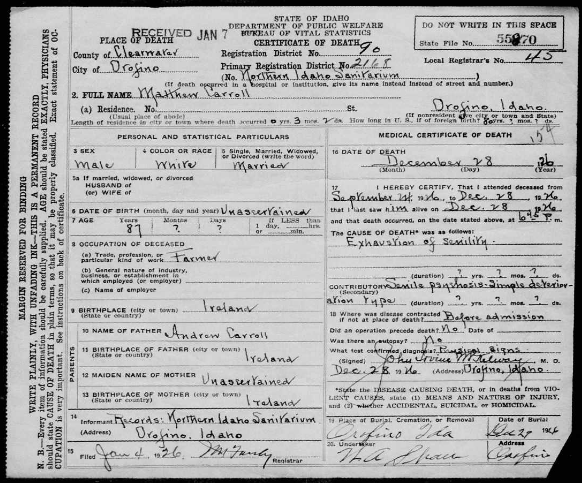 STATE OF IDAHO
DEPARTMENT OF PUBLIC WELFARE
BUREAU OF VITAL STATISTICS
CERTIFICATE OF DEATH
RECEIVED JAN 7
DO NOT WRITE IN THIS SPACE
State File No. 55870
Local Registrar's No. 45
PLACE OF DEATH
County of Clearwater
City of Orofino
Registration District No. 90
Primary Registration District No. 2168
(No. Northern Idaho Sanitarium)
(If death occurred in a hospital or institution, give its name instead of street and number.)
2. FULL NAME Matthew Carroll
(a) Residence. No. St. Orofino, Idaho.
(Usual place of abode) (If nonresident give city or town and State)
Length of residence in city or town where death occurred 0 yrs. 3 mos. 2 ds. How long in U. S., if of foreign birth?
154
PERSONAL AND STATISTICAL PARTICULARS
3 SEX
Male
4 COLOR OR RACE
White
5 Single, Married, Widowed, or Divorced (write the word)
Married
5a If married, widowed, or divorced
HUSBAND of
(or) WIFE of
6 DATE OF BIRTH (month, day and year) Unascertained
7 AGE Years Months Days If LESS than
1 day, hrs.
or min.
87 ? ?
8 OCCUPATION OF DECEASED
(a) Trade, profession, or particular kind of work Farmer
(b) General nature of industry, business, or establishment in which employed (or employer)
(c) Name of employer
9 BIRTHPLACE (city or town) Ireland
(State or country)
PARENTS
10 NAME OF FATHER Andrew Carroll
11 BIRTHPLACE OF FATHER (city or town)
(State or country) Ireland
12 MAIDEN NAME OF MOTHER Unascertained
13 BIRTHPLACE OF MOTHER (city or town)
(State or country) Ireland
14
Informant Records: Northern Idaho Sanitarium
(Address) Orofino, Idaho
15
Filed Jan 4 1926
Registrar
MEDICAL CERTIFICATE OF DEATH
16 DATE OF DEATH
December 28 26
(Month) (Day) (Year)
17 I HEREBY CERTIFY, That I attended deceased from
September 1926, to Dec. 28, 1926
that I last saw him alive on Dec. 28, 1926
and that death occurred, on the date stated above, at 645 P.
The CAUSE OF DEATH* was as follows:
Exhaustion of Senility.
(duration) ? yrs. ? mos. ? ds.
CONTRIBUTORY Senile psychosis - Simple deterior-
(Secondary)
ation Type (duration) ? yrs. ? mos. ? ds.
18 Where was disease contracted
if not at place of death? Before admission
Did an operation precede death? No Date of
Was there an autopsy? No
What test confirmed diagnosis? Physical Signs
(Signed) M. D.
Dec. 28 1926. (Address) Orofino, Idaho.
*State the DISEASE CAUSING DEATH, or in deaths from VIOLENT CAUSES, state (1) MEANS AND NATURE OF INJURY, and (2) whether ACCIDENTAL, SUICIDAL, or HOMICIDAL.
19 Place of Burial, Cremation, or Removal Date of Burial
Orofino Ida 1926
20 Undertaker (Address)
Orofino
MARGIN RESERVED FOR BINDING
WRITE PLAINLY, WITH UNFADING INK—THIS IS A PERMANENT RECORD
N. B.—Every item of information should be carefully supplied. AGE should be stated EXACTLY. PHYSICIANS should state CAUSE OF DEATH in plain terms so that it may be properly classified. Exact statement of OCCUPATION is very important. See instructions on back of certificate.